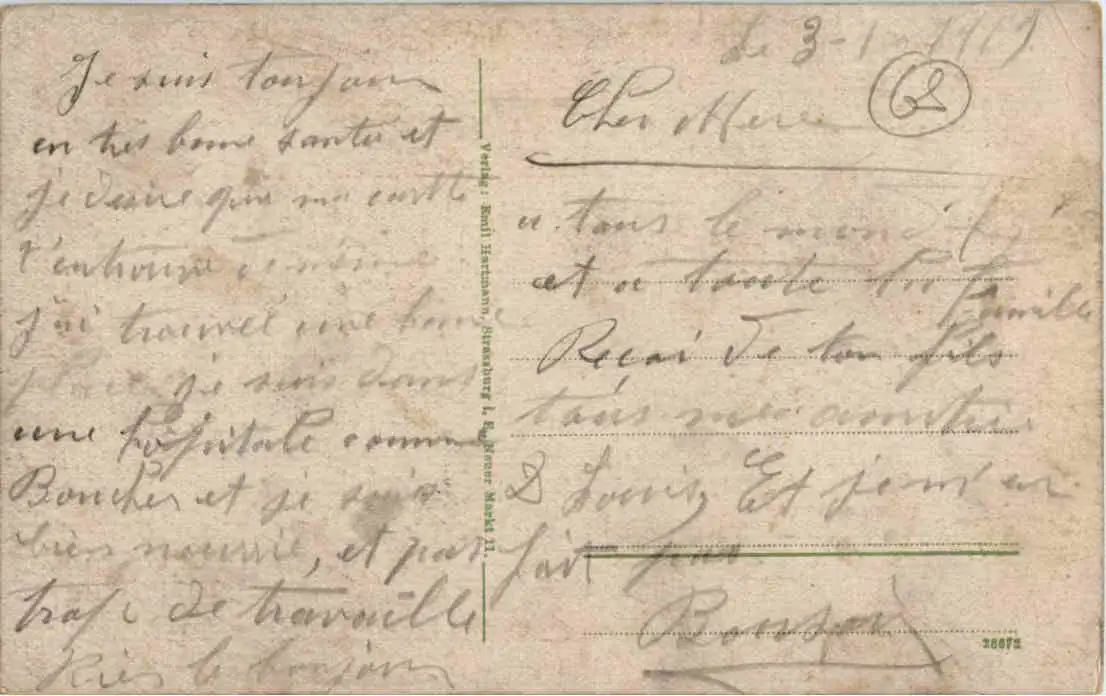 Le 3-1-1919
2
Cher Mere
Je suis toujour
en tres bonne santer et
je desire que ma cartte
t'entrouve de même
j'ai trouveé une bonne
place je suis dans
une hôpitale comme
Boucher et je suis
bien nourrie, et pas
trop de travaille
Rien le bonjour
a tous le monde
et a toute ta
famille
Reçoi de ton fils
tous mes amitier
Louis, Et je m'en
fait pas
Bonjour
Verlag: Emil Hartmann, Strassburg i. E. Neuer Markt 11.
26672